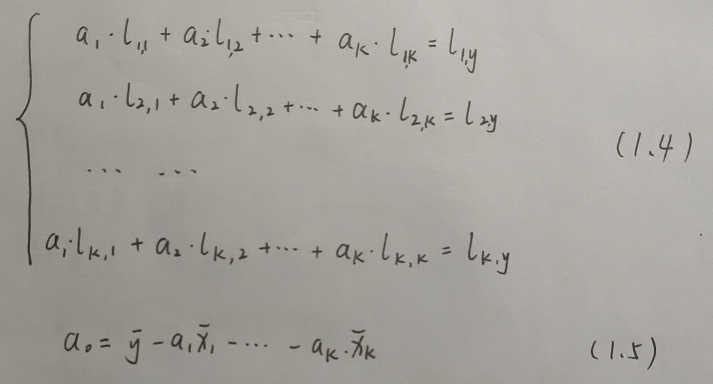 a₁·l₁,₁ + a₂·l₁,₂ + ··· + aₖ·l₁,ₖ = l₁,y
a₁·l₂,₁ + a₂·l₂,₂ + ··· + aₖ·l₂,ₖ = l₂,y
(1.4)
··· ···
a₁·lₖ,₁ + a₂·lₖ,₂ + ··· + aₖ·lₖ,ₖ = lₖ,y
a₀ = ȳ - a₁x̄₁ - ··· - aₖ·x̄ₖ (1.5)